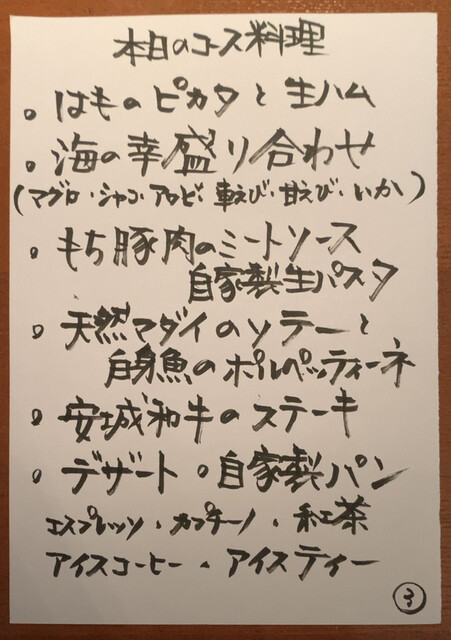 本日のコース料理
。はものピカタと生ハム
。海の幸盛り合わせ
(マグロ・シャコ・アワビ・車えび・甘えび・いか)
。もち豚肉のミートソース
自家製生パスタ
。天然マダイのソテーと
白身魚のポルペッティーネ
。安城和牛のステーキ
。デザート。自家製パン
エスプレッソ・カプチーノ・紅茶
アイスコーヒー・アイスティー
3